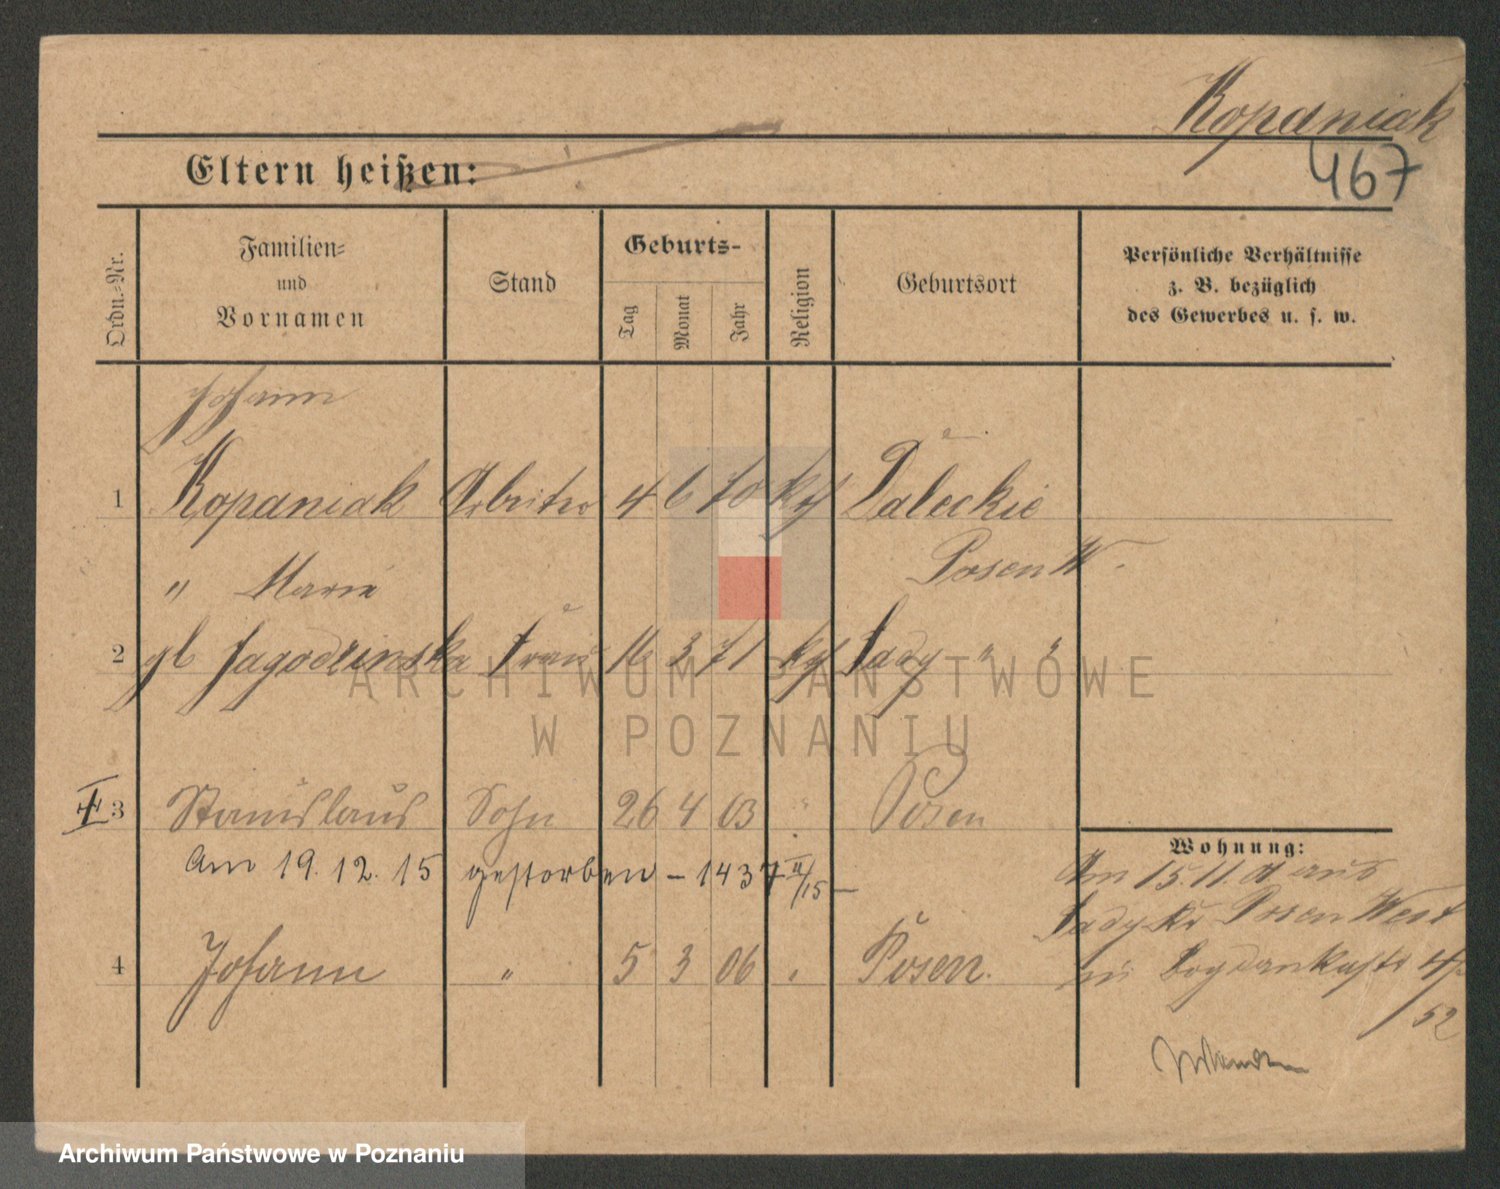 Kopaniak
467
Eltern heißen:
Ordn.-Nr.
Familien-
und
Vornamen
Stand
Geburts-
Tag
Monat
Jahr
Religion
Geburtsort
Persönliche Verhältnisse
z. B. bezüglich
des Gewerbes u. s. w.
Johann
1 Kopaniak Arbeiter 4 6 70 kth Paleckie
Posen W.
" Marie
2 gb Jagodzinska Frau 16 3 71 kth Sady " "
ARCHIWUM PAŃSTWOWE
W POZNANIU
3 Stanislaus Sohn 26 4 03 " Posen
am 19.12.15 gestorben - 1437 II/15 -
4 Johann " 5 3 06 " Posen.
Wohnung:
Am 15.11.01 aus
Sady Kr Posen West
in Bogdankastr 4/
52
Archiwum Państwowe w Poznaniu